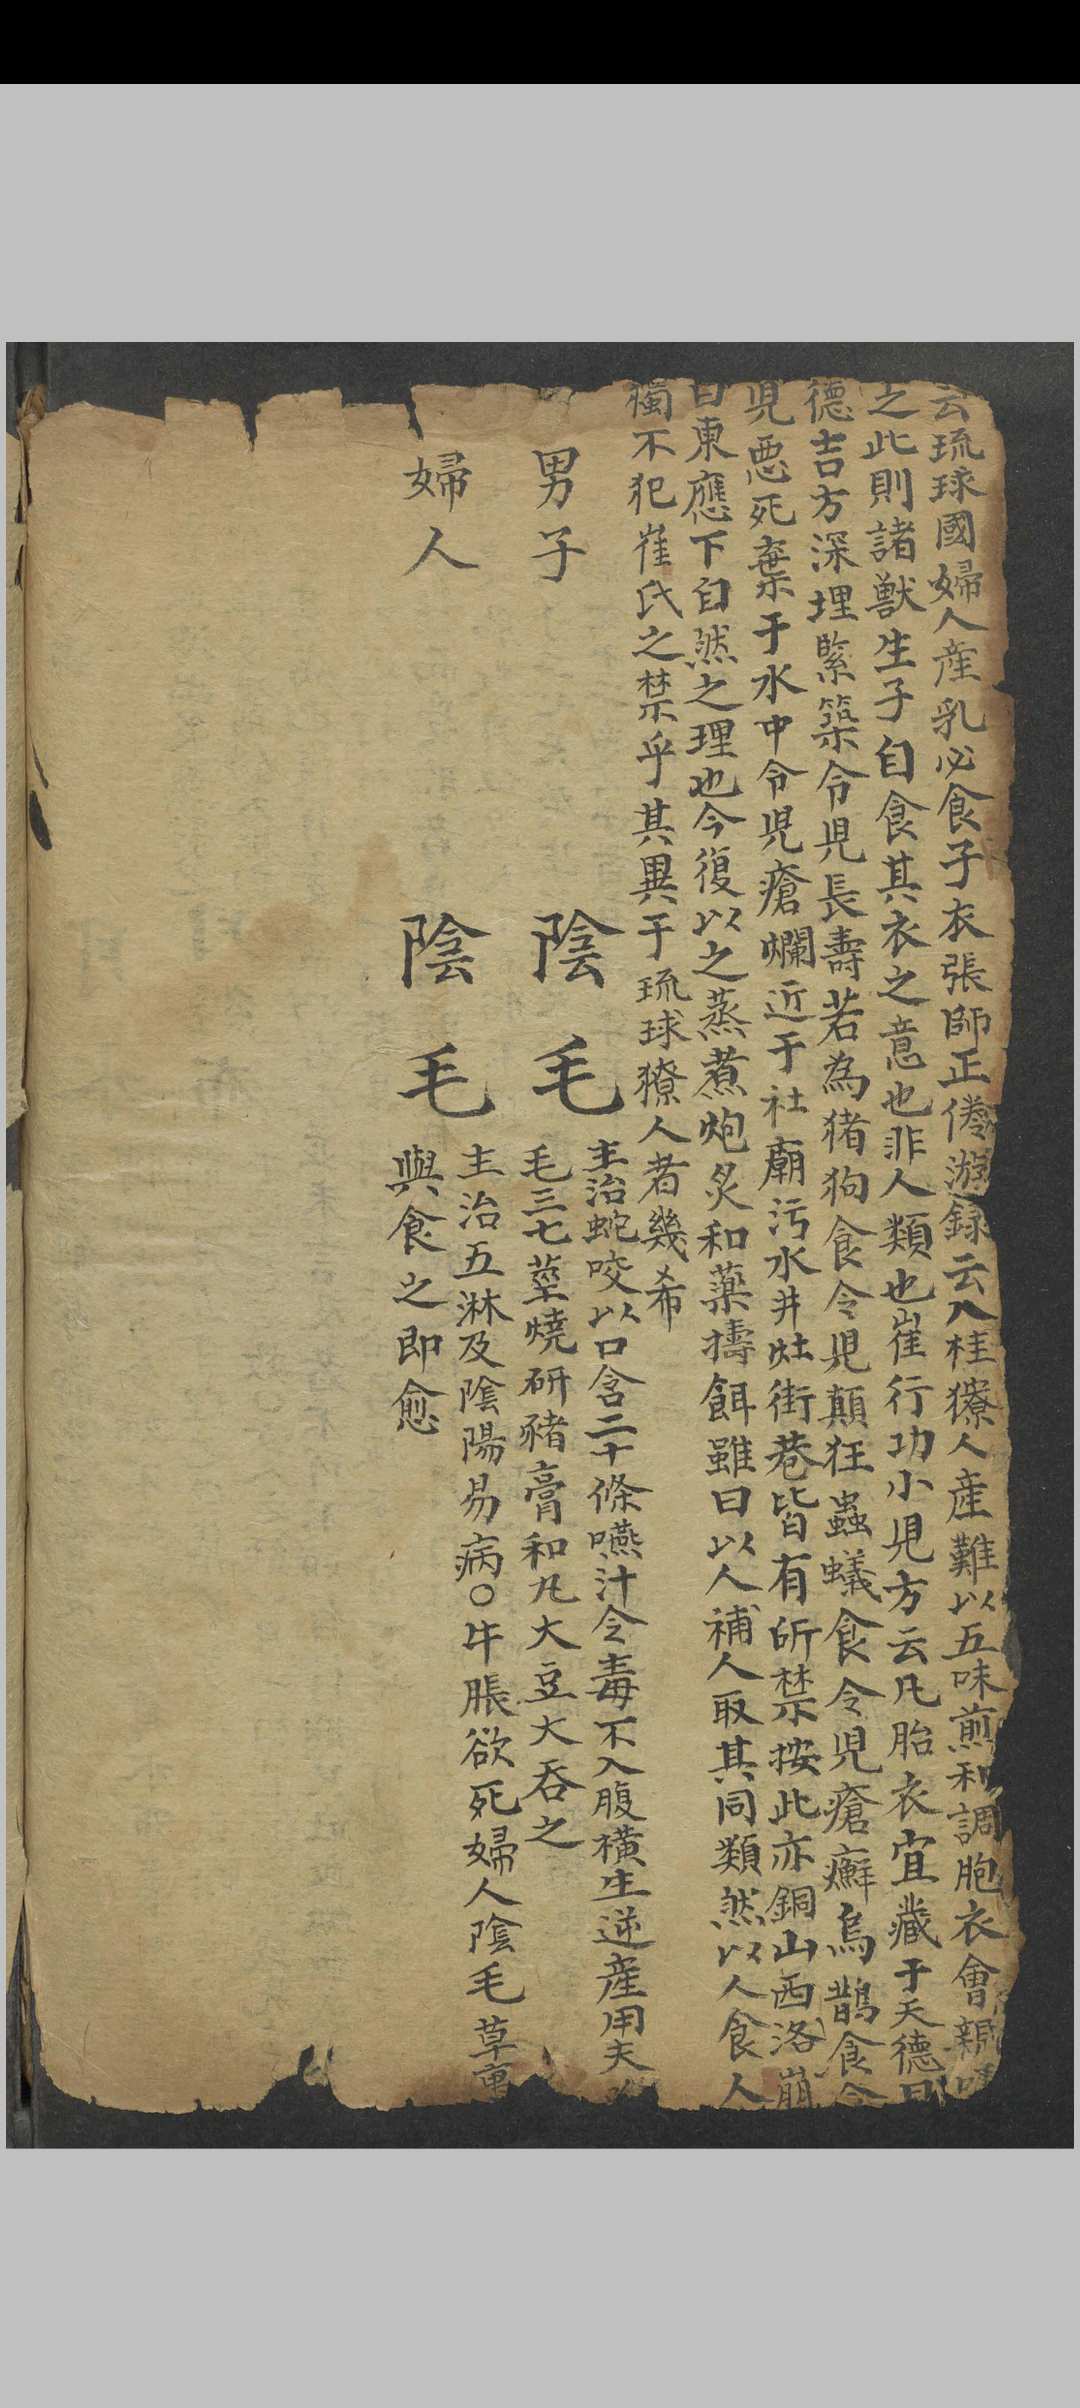 云琉球國婦人産乳必食子衣張師正倦游録云八桂獠人産難以五味煎和調胞衣會親
之此則諸獸生子自食其衣之意也非人類也崔行功小児方云凡胎衣宜藏于天德
德吉方深埋緊築令児長壽若為猪狗食令児顛狂蟲蟻食令児瘡癬烏鵲食令
児惡死棄于水中令児瘡爛近于社廟污水井灶街巷皆有所禁按此亦銅山西洛崩
東應下自然之理也今復以之蒸煮炮炙和藥擣餌雖曰以人補人取其同類然以人食人
獨不犯崔氏之禁乎其異于琉球獠人者幾希
男子陰毛 主治蛇咬以口含二十條嚥汁令毒不入腹横生逆産用夫
毛三七莖燒研豬膏和丸大豆大吞之
婦人陰毛 主治五淋及陰陽易病○牛脹欲死婦人陰毛草
與食之即愈